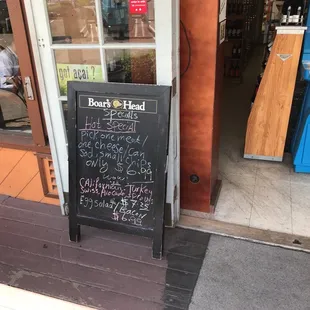 got açaí?
Boar's Head
Specials
Hot Special
Pick one meat
one cheese/can
soda small chips
only $6.99
California Turkey
Swiss Avocado
$7.25
Egg Salad
Bacon
$6.99